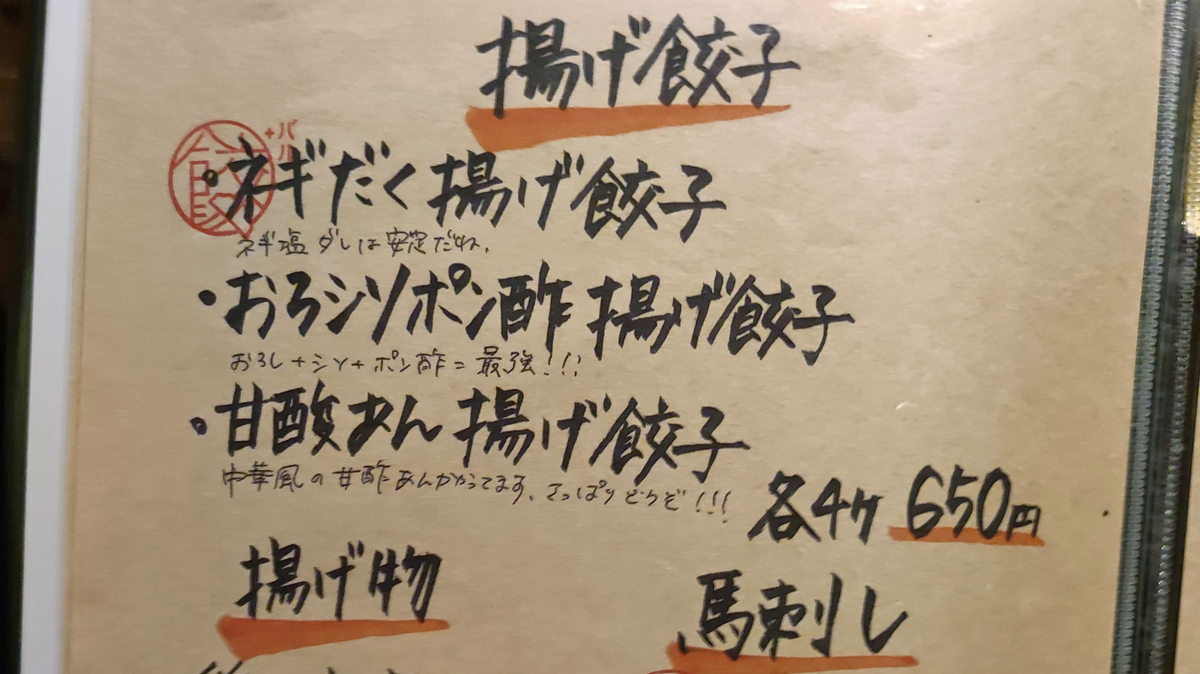 揚げ餃子
餃
+バル
・ネギだく揚げ餃子
ネギ塩ダレは安定だね。
・おろシソポン酢揚げ餃子
おろし+シソ+ポン酢=最強!!!
・甘酸あん揚げ餃子
中華風の甘酢あんかかってます。さっぱりどうぞ!!!
各4ケ 650円
揚げ物
馬刺し